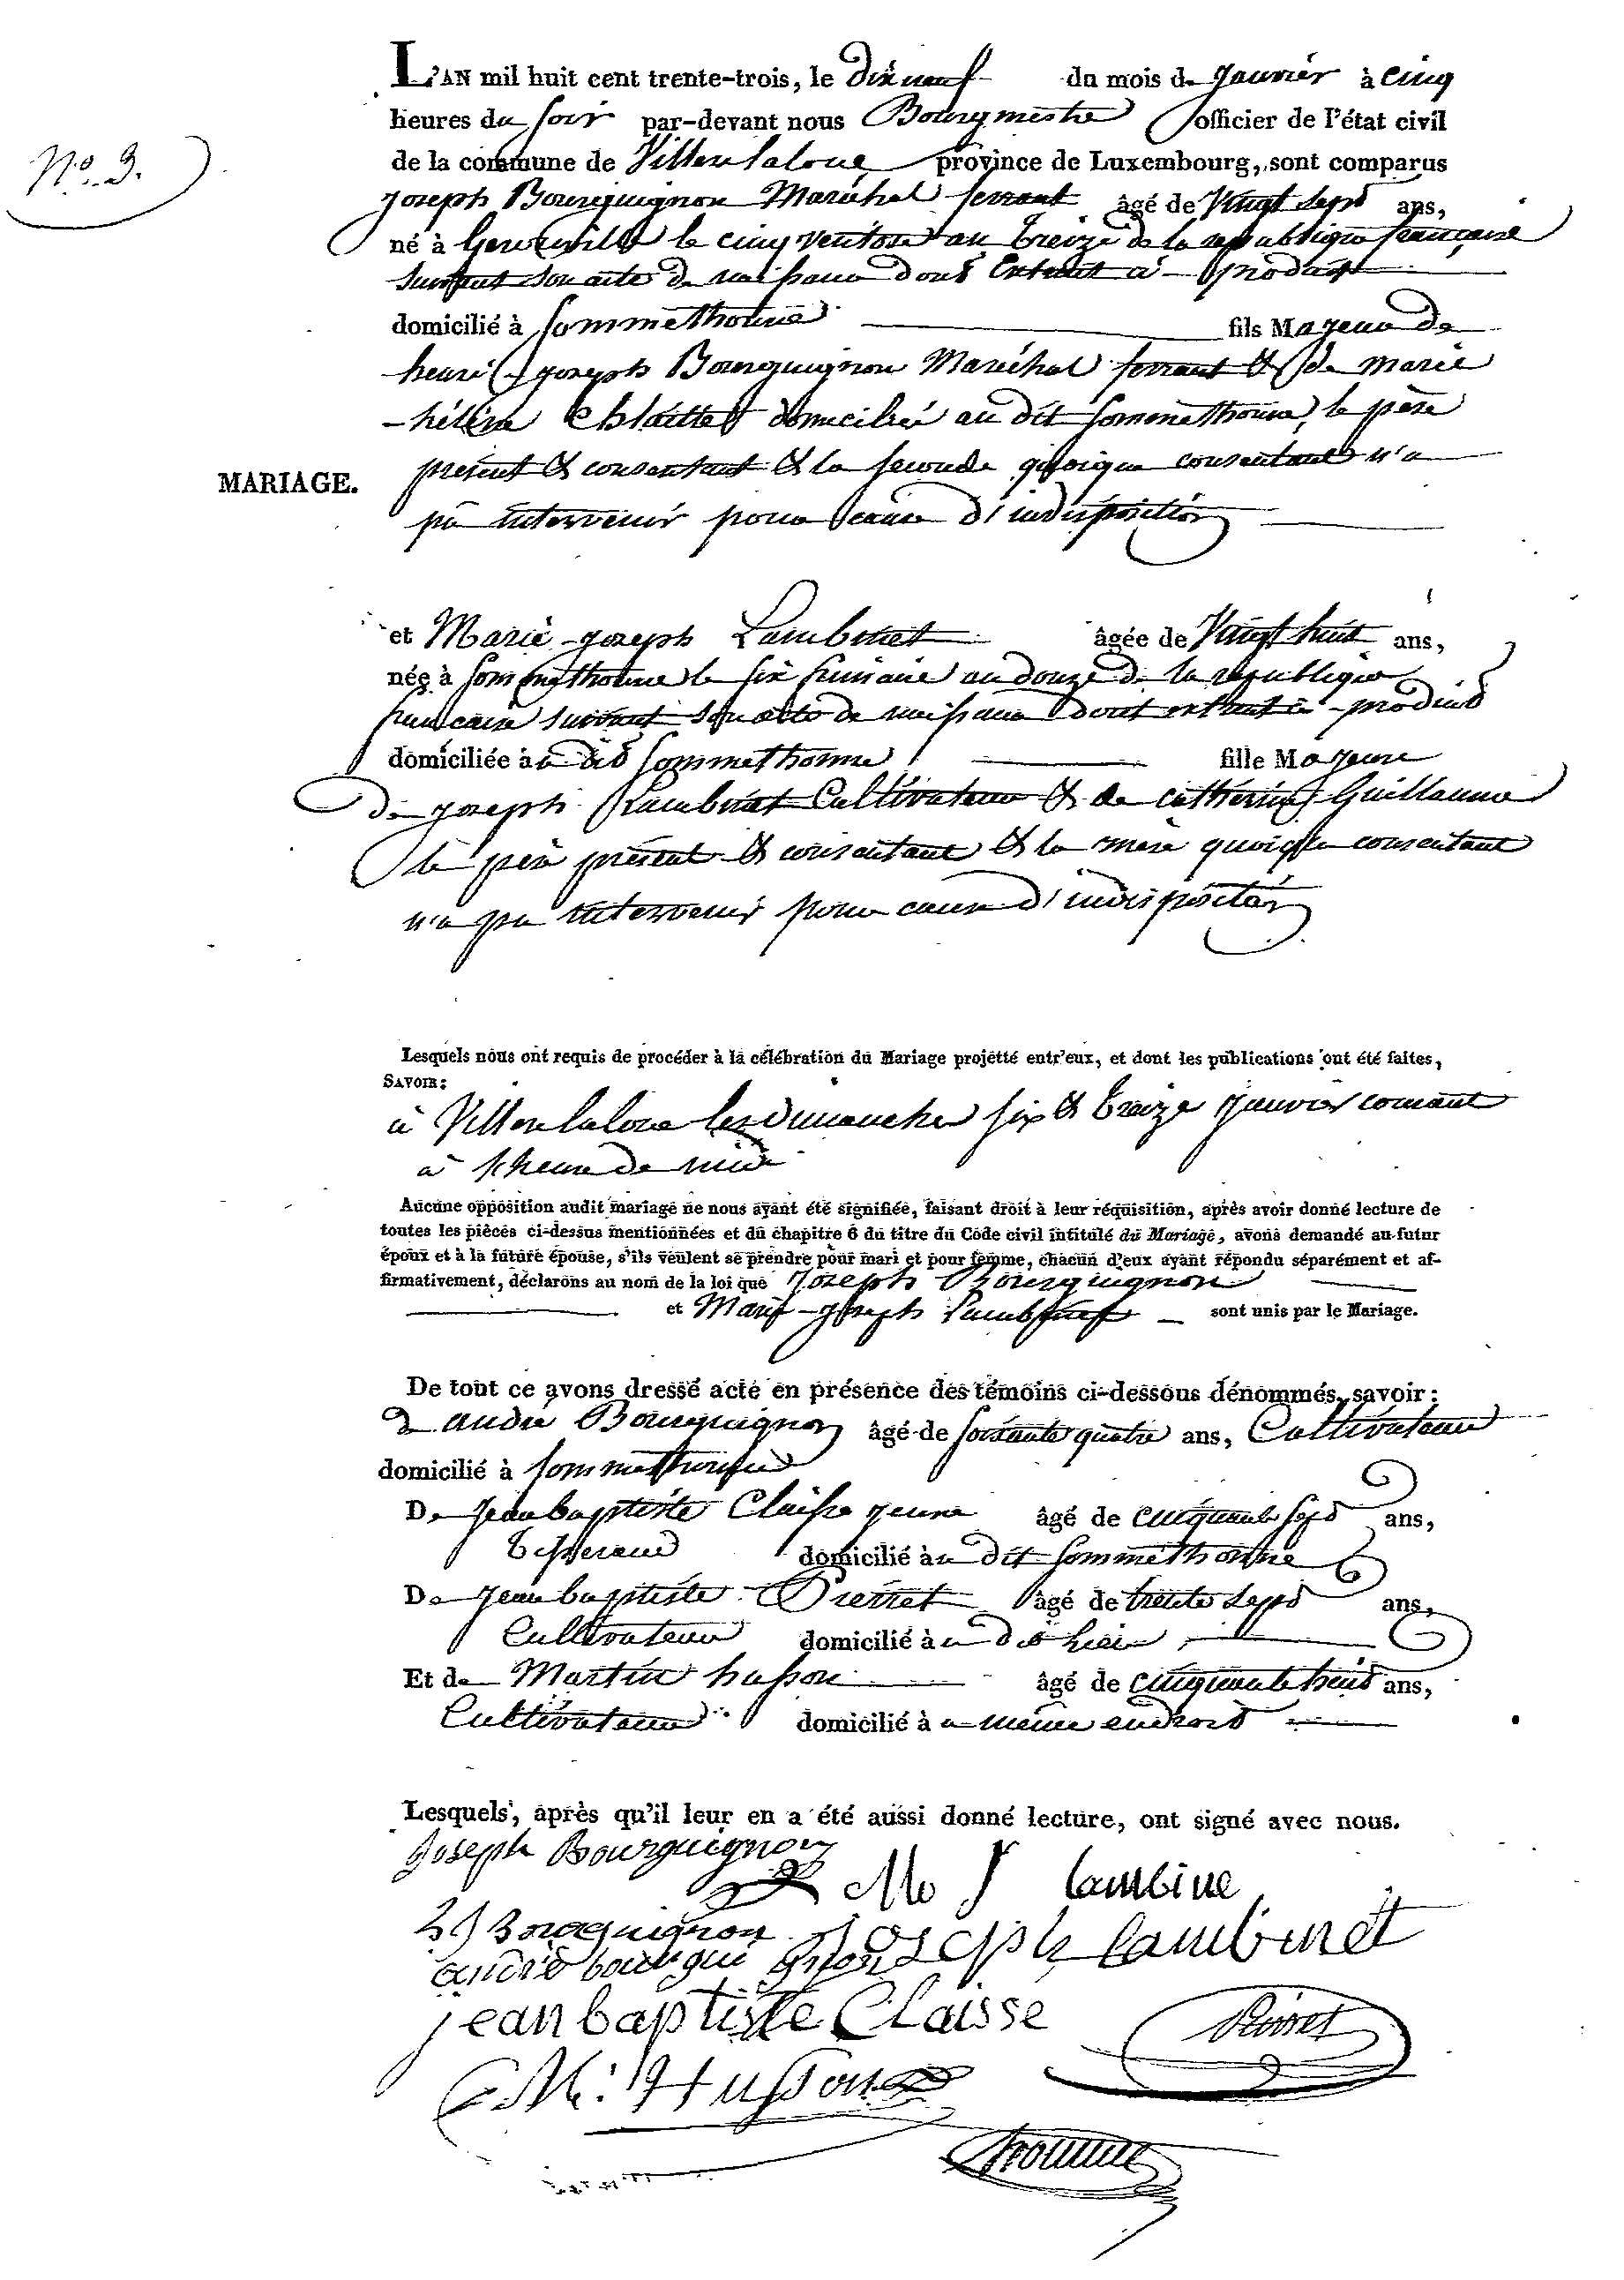 L'AN mil huit cent trente-trois, le dix neuf du mois de Janvier à cinq
heures du soir par-devant nous Bourgmestre officier de l'état civil
de la commune de Villers laloue province de Luxembourg, sont comparus
N.o 3.
joseph Bourguignon Maréchal ferrant âgé de Vingt sept ans,
né à Gerouville le cinq ventose an treize de la republique française
suivant son acte de naissance dont Extrait a produit
domicilié à Sommethonne fils Majeur de
henri joseph Bourguignon Maréchal ferrant & de marie
hélène domiciliés au dit Sommethonne, le père
MARIAGE.
présent & consentant & la seconde quoique consentant n'a
pû intervenir pour cause d'indisposition
et Marie joseph Lambinet âgée de Vingt huit ans,
née à Sommethonne le six frimaire an douze de la republique
francaise suivant son acte de naissance dont extrait a produit
domiciliée à u dit Sommethonne fille Majeure
de joseph Lambinet Cultivateur & de catherine Guillaume
le père présent & consentant & la mère quoique consentant
n'a pu intervenir pour cause d'indisposition
Lesquels nous ont requis de procéder à la célébration du Mariage projetté entr'eux, et dont les publications ont été faites,
SAVOIR:
à Villers laloue les dimanches six & treize janvier courant
à heure de midi
Aucune opposition audit mariage ne nous ayant été signifiée, faisant droit à leur réquisition, après avoir donné lecture de
toutes les pièces ci-dessus mentionnées et du chapitre 6 du titre du Code civil intitulé du Mariage, avons demandé au futur
époux et à la future épouse, s'ils veulent se prendre pour mari et pour femme, chacun d'eux ayant répondu séparément et af-
firmativement, déclarons au nom de la loi que Joseph Bourguignon
et Marie joseph Lambinet sont unis par le Mariage.
De tout ce avons dressé acte en présence des témoins ci-dessous dénommés, savoir:
D andré Bourguignon âgé de soixante quatre ans, Cultivateur
domicilié à Sommethonne
De jean baptiste Claisse jeune âgé de cinquante sept ans,
tisserand domicilié à u dit Sommethonne
De jean baptiste Pierret âgé de trente sept ans,
Cultivateur domicilié à u dit lieu
Et de Martin husson âgé de cinquante huit ans,
Cultivateur domicilié à u meme endroit
Lesquels, après qu'il leur en a été aussi donné lecture, ont signé avec nous.
Joseph Bourguignon
M J lambine
h J Bourguignon Joseph lambinet
andré bourguignon
jean baptiste Claisse
Pierret
M. Husson